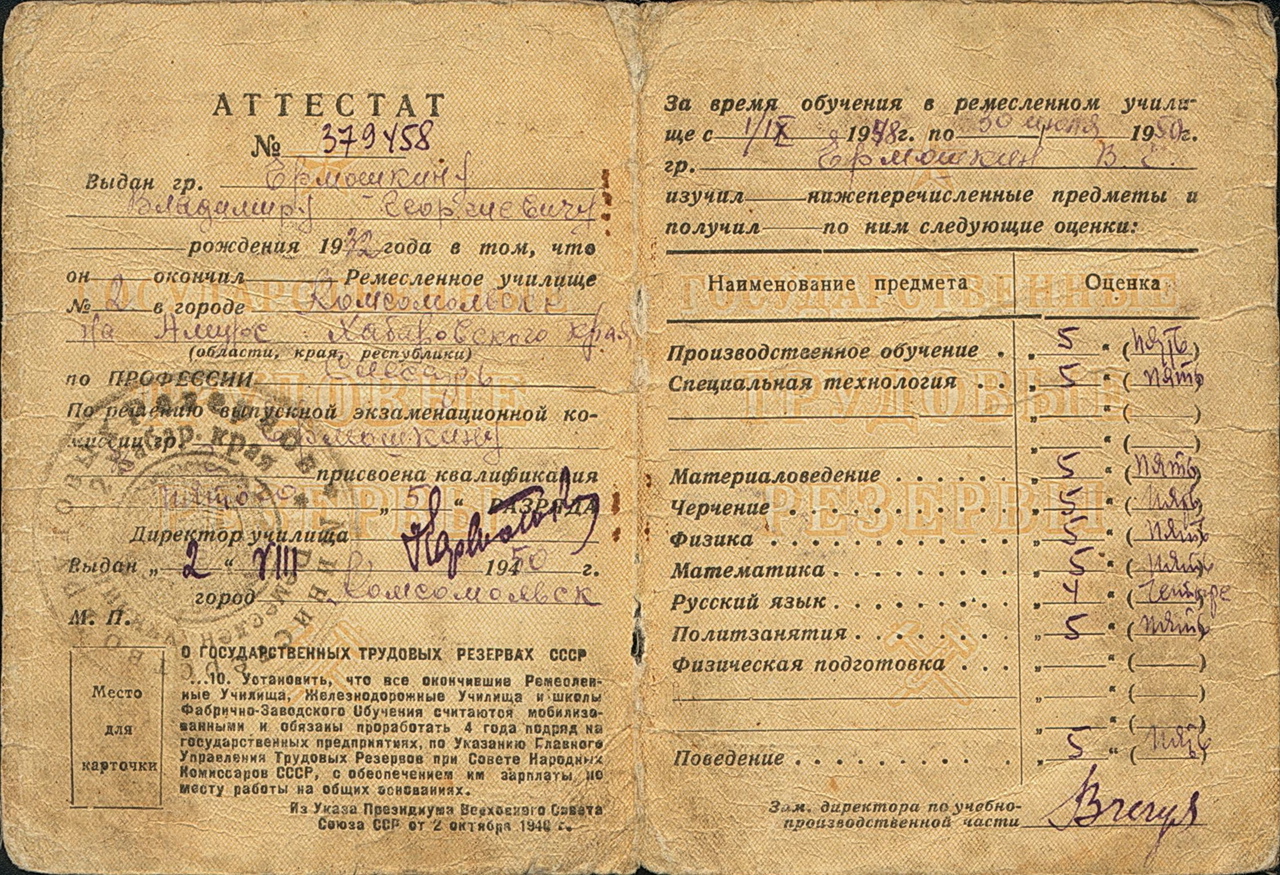 АТТЕСТАТ
№ 379458
Выдан гр. Ермошкину
Владимиру Георгиевичу
рождения 1932 года в том, что
он окончил Ремесленное училище
№ 2 в городе Комсомольске
на Амуре Хабаровского края
(области, края, республики)
по ПРОФЕССИИ Слесарь
По решению выпускной экзаменационной ко-
миссии гр. Ермошкину
присвоена квалификация
пятого „ 5 “ РАЗРЯДА
Директор училища
Выдан „ 2 “ VIII 1950 г.
город Комсомольск
М. П.
Место
для
карточки
О ГОСУДАРСТВЕННЫХ ТРУДОВЫХ РЕЗЕРВАХ СССР
...10. Установить, что все окончившие Ремеслен-
ные Училища, Железнодорожные Училища и школы
Фабрично-Заводского Обучения считаются мобилизо-
ванными и обязаны проработать 4 года подряд на
государственных предприятиях, по Указанию Главного
Управления Трудовых Резервов при Совете Народных
Комиссаров СССР, с обеспечением им зарплаты по
месту работы на общих основаниях.
Из Указа Президиума Верховного Совета
Союза ССР от 2 октября 1940 г.
За время обучения в ремесленном учили-
ще с 1/IX 1948г. по 30 июля 1950г.
гр. Ермошкин В. Г.
изучил нижеперечисленные предметы и
получил по ним следующие оценки:
Наименование предмета Оценка
Производственное обучение . „ 5 “ (пять)
Специальная технология . . „ 5 “ (пять)
„ “ ( )
„ “ ( )
Материаловедение . . . . . . „ 5 “ (пять)
Черчение . . . . . . . . . . „ 5 “ (пять)
Физика . . . . . . . . . . . „ 5 “ (пять)
Математика . . . . . . . . . „ 5 “ (пять)
Русский язык . . . . . . . . „ 4 “ (четыре)
Политзанятия . . . . . . . . „ 5 “ (пять)
Физическая подготовка . . . „ “ ( )
„ “ ( )
„ “ ( )
Поведение . . . . . . . . . . „ 5 “ (пять)
Зам. директора по учебно-
производственной части
ГОСУДАРСТВЕННЫЕ
ТРУДОВЫЕ
РЕЗЕРВЫ